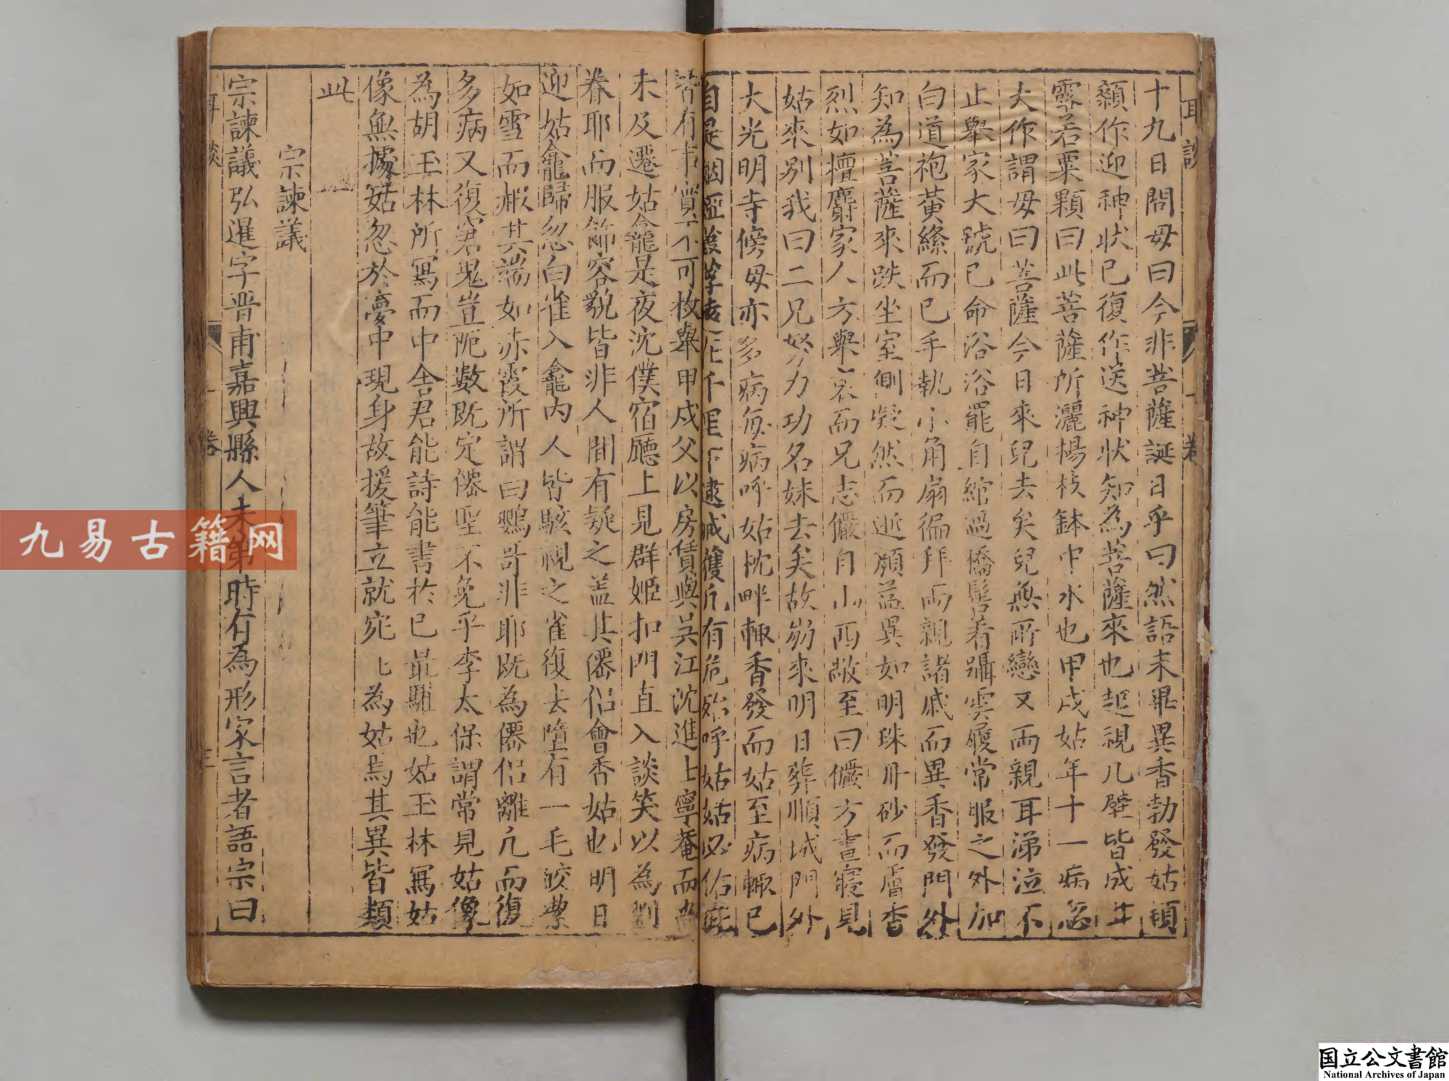 十九日問母曰今非菩薩誕日乎曰然語未畢異香勃發姑頓
顙作迎神狀已復作送神狀知為菩薩來也起視几壁皆成
露若粟顆曰此菩薩所灑楊枝鉢中水也甲戌姑年十一病忽
大作謂母曰菩薩今日來兒去矣兒無所戀又兩親耳涕泣不
止舉家大號已命浴浴罷自綰過橋髻着躡雲履常服之外加
白道袍黃絛而已手執小角扇徧拜兩親諸戚而異香發門外
知為菩薩來趺坐室側凝然而逝顏益異如明珠丹砂而膚香
烈如檀麝家人方舉哀而兄志儼自山西敞至曰儼方晝寢見
姑來别我曰二兄努力功名妹去矣故崩來明日葬順城門外
大光明寺傍母亦多病每病呼姑枕畔輒香發而姑至病輒已
自是姻婭 在千里下逮臧獲凡有危殆呼姑姑必佑
皆有 實不可枚舉甲戌父以房賃與吳江沈進士寧菴而
未及遷姑龕是夜沈僕宿廳上見群姬扣門直入談笑以為劉
眷耶而服飾容貌皆非人間有疑之蓋其僊侶會香姑也明日
迎姑龕歸忽白雀入龕內人皆駭視之雀復去墮有一毛皎潔
如雪而椒其端如赤霞所謂曰鸚哥非耶既為僊侶離凡而復
多病又復窘鬼豈阨數既定僊聖不免乎李太保謂常見姑像
為胡玉林所寫而中舍君能詩能書於已最馴也姑玉林寫姑
像無據姑忽於夢中現身故援筆立就宛上為姑焉其異皆類
此
宗諫議
宗諫議弘暹字晋甫嘉興縣人未第時有為形家言者語宗曰
耳談
卷
三
九易古籍网
国立公文書館
National Archives of Japan